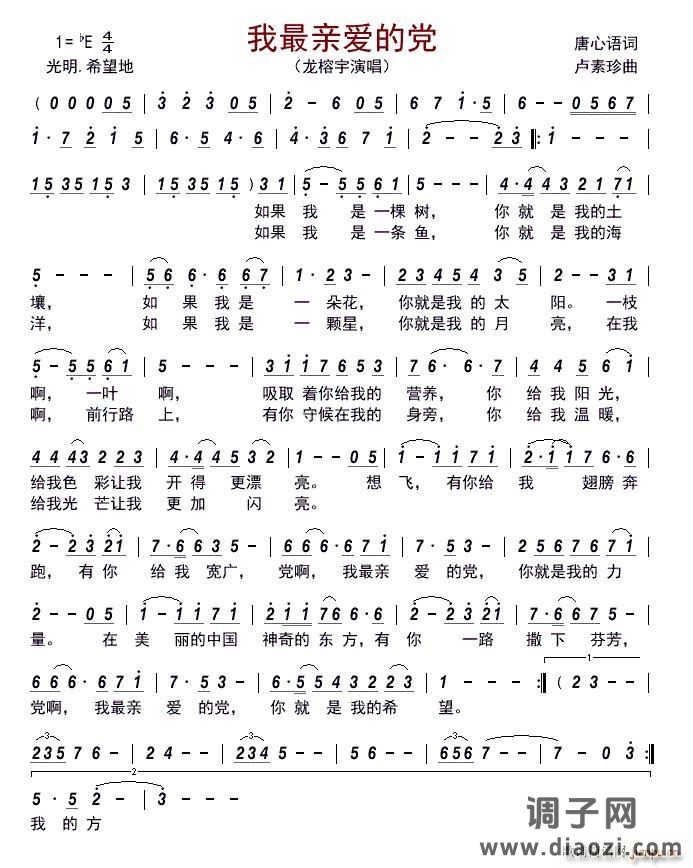 1= ♭E 4/4
我最亲爱的党
唐心语词
光明.希望地
（龙榕宇演唱）
卢素珍曲
( 0 0 0 0 0 5 | 3 2 3 0 5 | 2 - 6 0 5 | 6 7 1 · 5 | 6 - - 0 5 6 7 |
1 · 7 2 1 5 | 6 · 5 4 · 6 | 4 · 3 6 7 1 | 2 - - 2 3 ‖: 1 - - - |
1 5 3 5 1 5 3 | 1 5 3 5 1 5 ) 3 1 | 5 - 5 5 6 1 | 5 - - - | 4 · 4 4 3 2 1 7 1 |
如果 我 是 一棵 树， 你 就 是 我的 土
如果 我 是 一条 鱼， 你 就 是 我的 海
5 - - - | 5 6 6 · 6 6 7 | 1 · 2 3 - | 2 3 4 5 4 5 4 3 | 2 - - 3 1 |
壤， 如 果 我 是 一 朵花， 你就是我 的 太 阳。 一枝
洋， 如 果 我 是 一 颗星， 你就是我 的 月 亮， 在我
5 - 5 5 6 1 | 5 - - - | 3 1 1 7 6 5 3 | 7 6 · 6 · 7 | 4 4 5 6 1 |
啊， 一叶 啊， 吸取 着你给我的 营养， 你 给 我 阳光，
啊， 前行路 上， 有你 守候在我的 身旁， 你 给 我 温暖，
4 4 4 3 2 2 3 | 4 · 4 4 5 3 2 | 1 - 0 5 | 1 - 1 1 7 1 | 2 · 1 1 7 6 · 6 |
给我色 彩让我 开 得 更漂 亮。 想 飞，有你给 我 翅膀奔
给我光 芒让我 更 加 闪 亮。
2 - 2 3 2 1 | 7 · 6 6 3 5 - | 6 6 6 · 6 7 1 | 7 · 5 3 - | 2 5 6 7 6 7 1 |
跑， 有 你 给 我 宽广， 党啊， 我最亲 爱 的党， 你就是我的 力
2 - - 0 5 | 1 - 1 1 7 1 | 2 1 1 1 7 6 6 · | 5 - 4 · 3 | 2 2 3 5 - |
量。 在 美 丽的中国 神奇的 东 方，有 你 一路 撒 下 芬芳，
6 6 6 · 6 7 1 | 7 · 5 3 - | 6 · 5 5 4 3 2 2 3 | 1 - - - :‖ ( 2 3 - - |
1
党啊， 我最亲 爱 的党， 你 就 是 我的 希 望。
2 3 5 7 6 - | 6 - - - | 2 3 4 5 4 - | 5 - - - | 6 5 6 7 - - | 7 - 0 3 :‖
2
5 · 5 2 - | 3 - - - ‖
我 的 方
调子网
www.diaozi.com